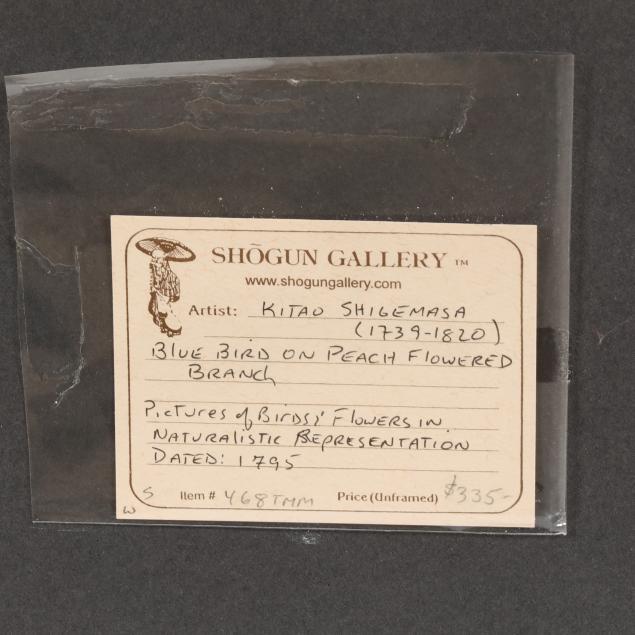 SHŌGUN GALLERY ™
www.shogungallery.com
Artist: KITAO SHIGEMASA
(1739-1820)
BLUE BIRD ON PEACH FLOWERED
BRANCH
PICTURES of BIRDS & FLOWERS IN
NATURALISTIC REPRESENTATION
DATED: 1795
S Item # 468TMM Price (Unframed) $335-
W